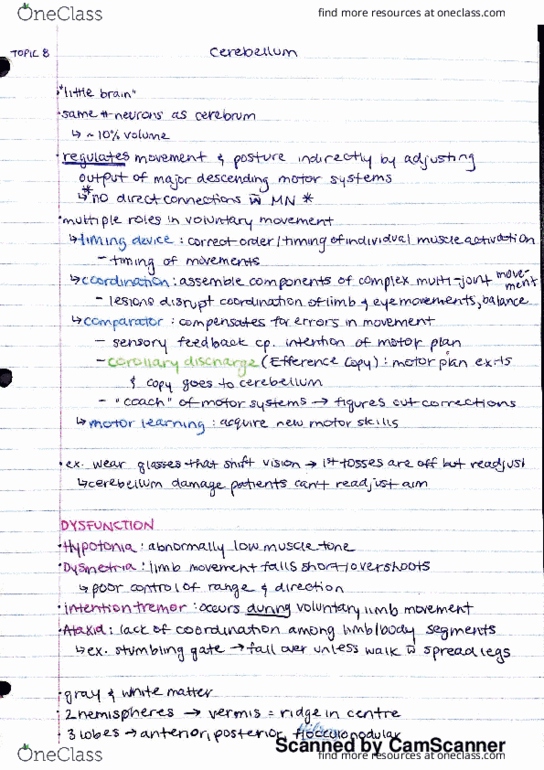 OneClass
find more resources at oneclass.com
TOPIC 8 cerebellum
• "little brain"
• same # neurons as cerebrum
↳ ~10% volume
• regulates movement & posture indirectly by adjusting
output of major descending motor systems
↳ *no direct connections w̄ MN *
• multiple roles in voluntary movement
↳ timing device : correct order/timing of individual muscle activation
– timing of movements
↳ coordination : assemble components of complex multi-joint movement
– lesions disrupt coordination of limb & eye movements, balance
↳ comparator : compensates for errors in movement
– sensory feedback cp. intention of motor plan
– corollary discharge (Efference Copy) : motor plan exits
& copy goes to cerebellum
– "coach" of motor systems → figures out corrections
↳ motor learning : acquire new motor skills
• ex. wear glasses that shift vision → 1st tosses are off but readjust
↳ cerebellum damage patients can't readjust aim
DYSFUNCTION
• Hypotonia : abnormally low muscle tone
• Dysmetria : limb movement falls short/overshoots
↳ poor control of range & direction
• intention tremor : occurs during voluntary limb movement
• Ataxia : lack of coordination among limb/body segments
↳ ex. stumbling gate → fall over unless walk w̄ spread legs
• gray & white matter
• 2 hemispheres → vermis = ridge in centre
• 3 lobes → anterior, posterior, flocculonodular
Scanned by CamScanner
OneClass
find more resources at oneclass.com